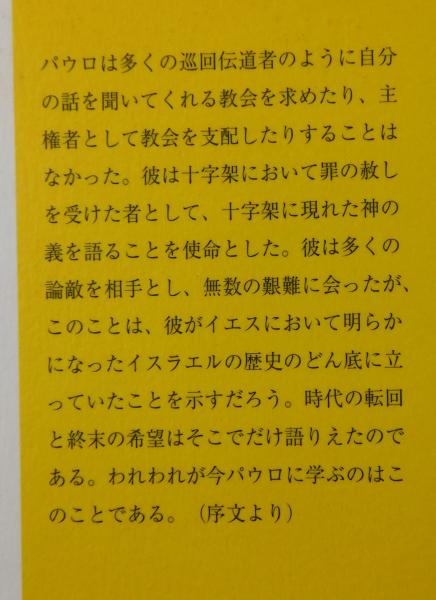 パウロは多くの巡回伝道者のように自分
の話を聞いてくれる教会を求めたり、主
権者として教会を支配したりすることは
なかった。彼は十字架において罪の赦し
を受けた者として、十字架に現れた神の
義を語ることを使命とした。彼は多くの
論敵を相手とし、無数の艱難に会ったが、
このことは、彼がイエスにおいて明らか
になったイスラエルの歴史のどん底に立
っていたことを示すだろう。時代の転回
と終末の希望はそこでだけ語りえたので
ある。われわれが今パウロに学ぶのはこ
のことである。（序文より）